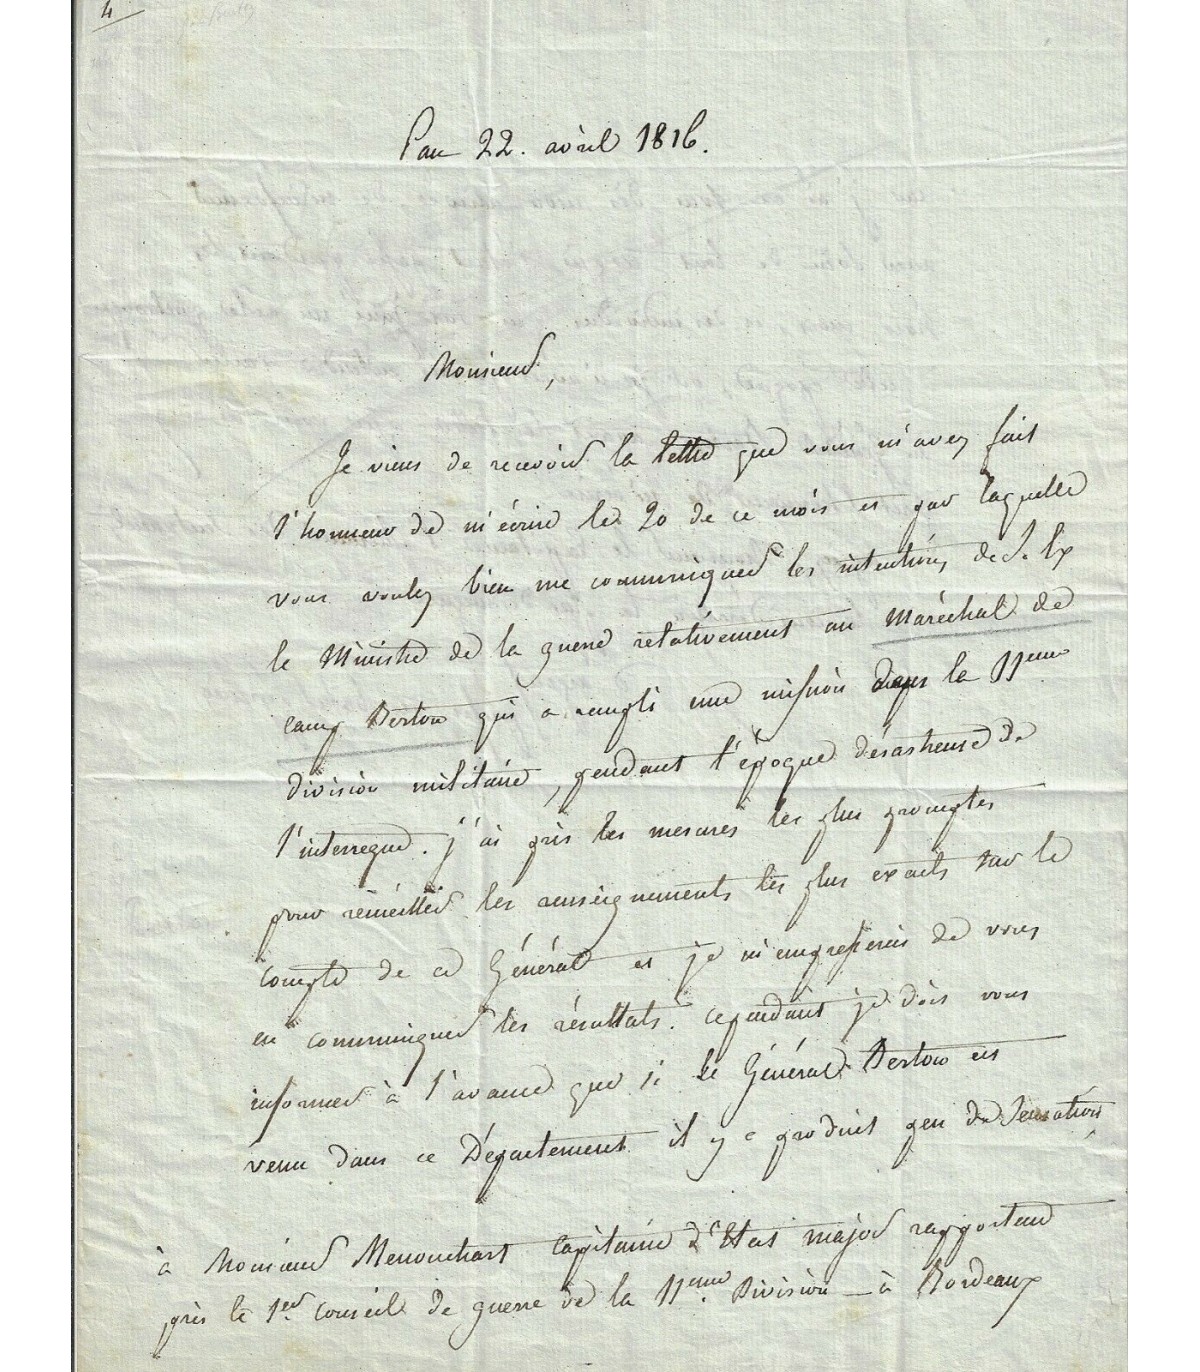 4
Pau 22. avril 1816.
Monsieur,
Je viens de recevoir la lettre que vous m'avez fait
l'honneur de m'écrire le 20 de ce mois et par laquelle
vous voulez bien me communiquer les intentions de S. Ex
le Ministre de la guerre relativement au Maréchal de
camp Berton qui a rempli une mission dans la 11eme
division militaire, pendant l'époque désastreuse de
l'interregne. j'ai pris les mesures les plus promptes
pour recueillir les renseignements les plus exacts sur le
compte de ce Général et je m'empresserai de vous
en communiquer les résultats. cependant je dois vous
informer à l'avance que si le Général Berton est
venu dans ce Département il y a produit peu de sensation,
à Monsieur Menouchart capitaine d'Etat major rapporteur
près le 1er Conseil de guerre de la 11eme Division — à Bordeaux